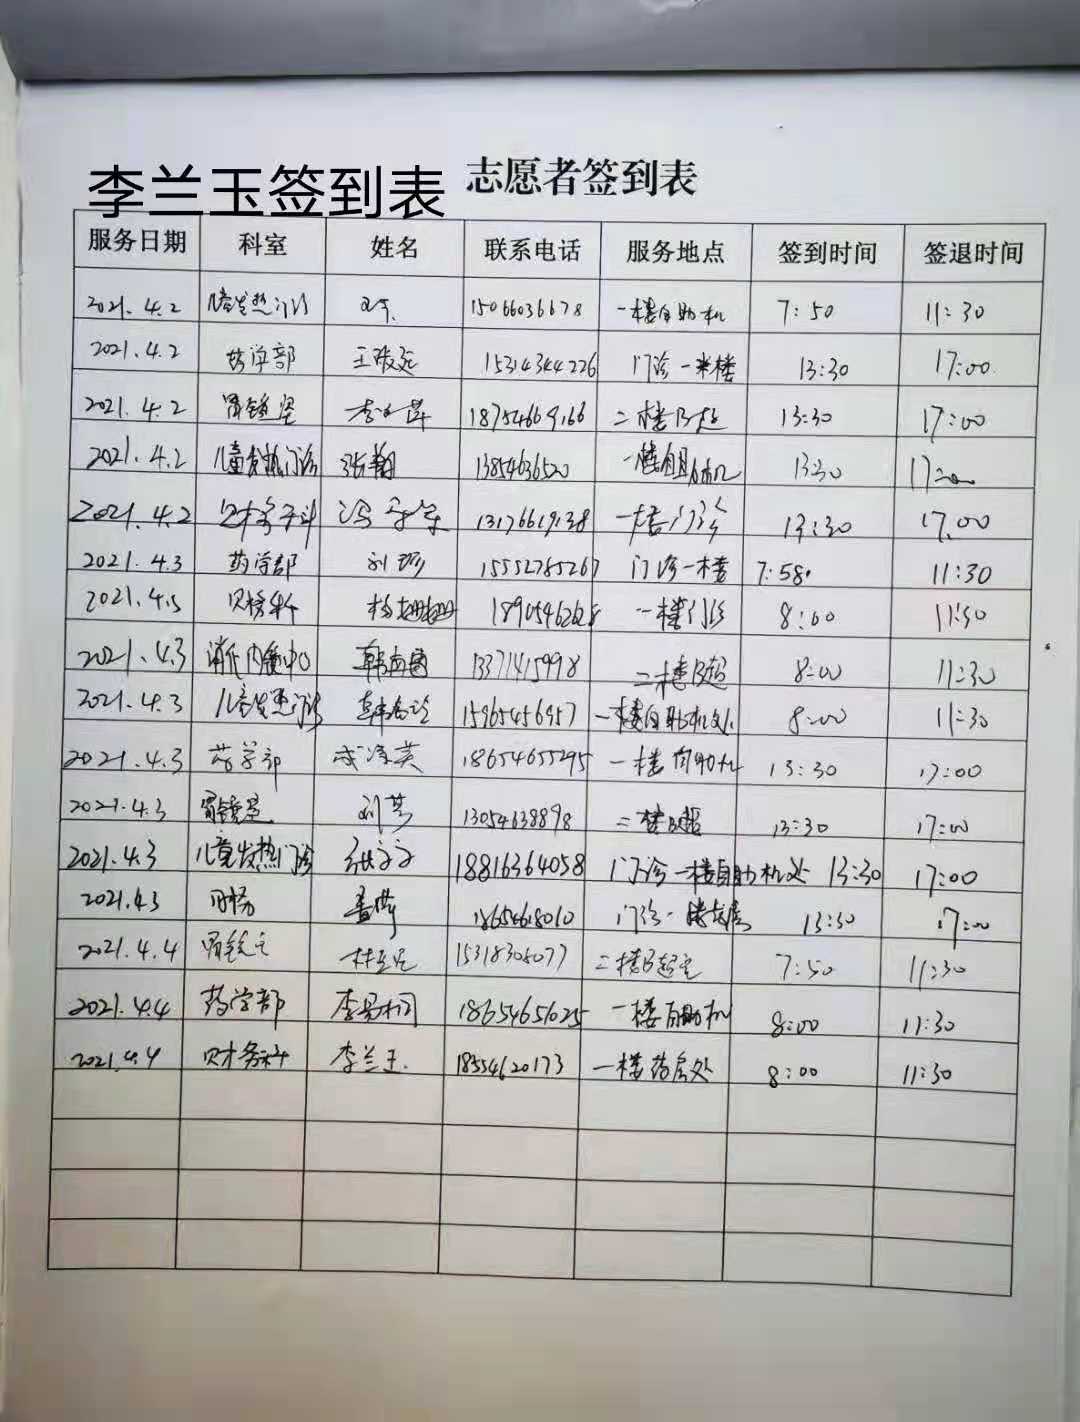 李兰玉签到表 志愿者签到表
服务日期 科室 姓名 联系电话 服务地点 签到时间 签退时间
2021.4.2 儿童发热门诊 15066036678 一楼自助机 7:50 11:30
2021.4.2 药学部 15314344226 门诊一楼 13:30 17:00
2021.4.2 胃镜室 18754669166 二楼B超 13:30 17:00
2021.4.2 儿童发热门诊 张翔 13854636520 一楼自助机 13:30 17:00
2021.4.2 13176619138 一楼门诊 13:30 17.00
2021.4.3 药学部 刘珍 15552785267 门诊一楼 7:58 11:30
2021.4.3 杨姗姗 18905462628 一楼门诊 8:00 11:30
2021.4.3 消化内镜中心 13371415998 二楼B超 8:00 11:30
2021.4.3 儿童发热门诊 15965456957 一楼自助机处 8:00 11:30
2021.4.3 药学部 18654655295 一楼 13:30 17:00
2021.4.3 胃镜室 13054638898 二楼B超 13:30 17:00
2021.4.3 儿童发热门诊 张文文 18816364058 门诊一楼自助机处 13:30 17:00
2021.4.3 18654618010 门诊一楼药房 13:30 17:00
2021.4.4 15318308077 二楼B超室 7:50 11:30
2021.4.4 药学部 18654651025 一楼自助机 8:00 11:30
2021.4.4 财务科 李兰玉 18554620173 一楼药房处 8:00 11:30